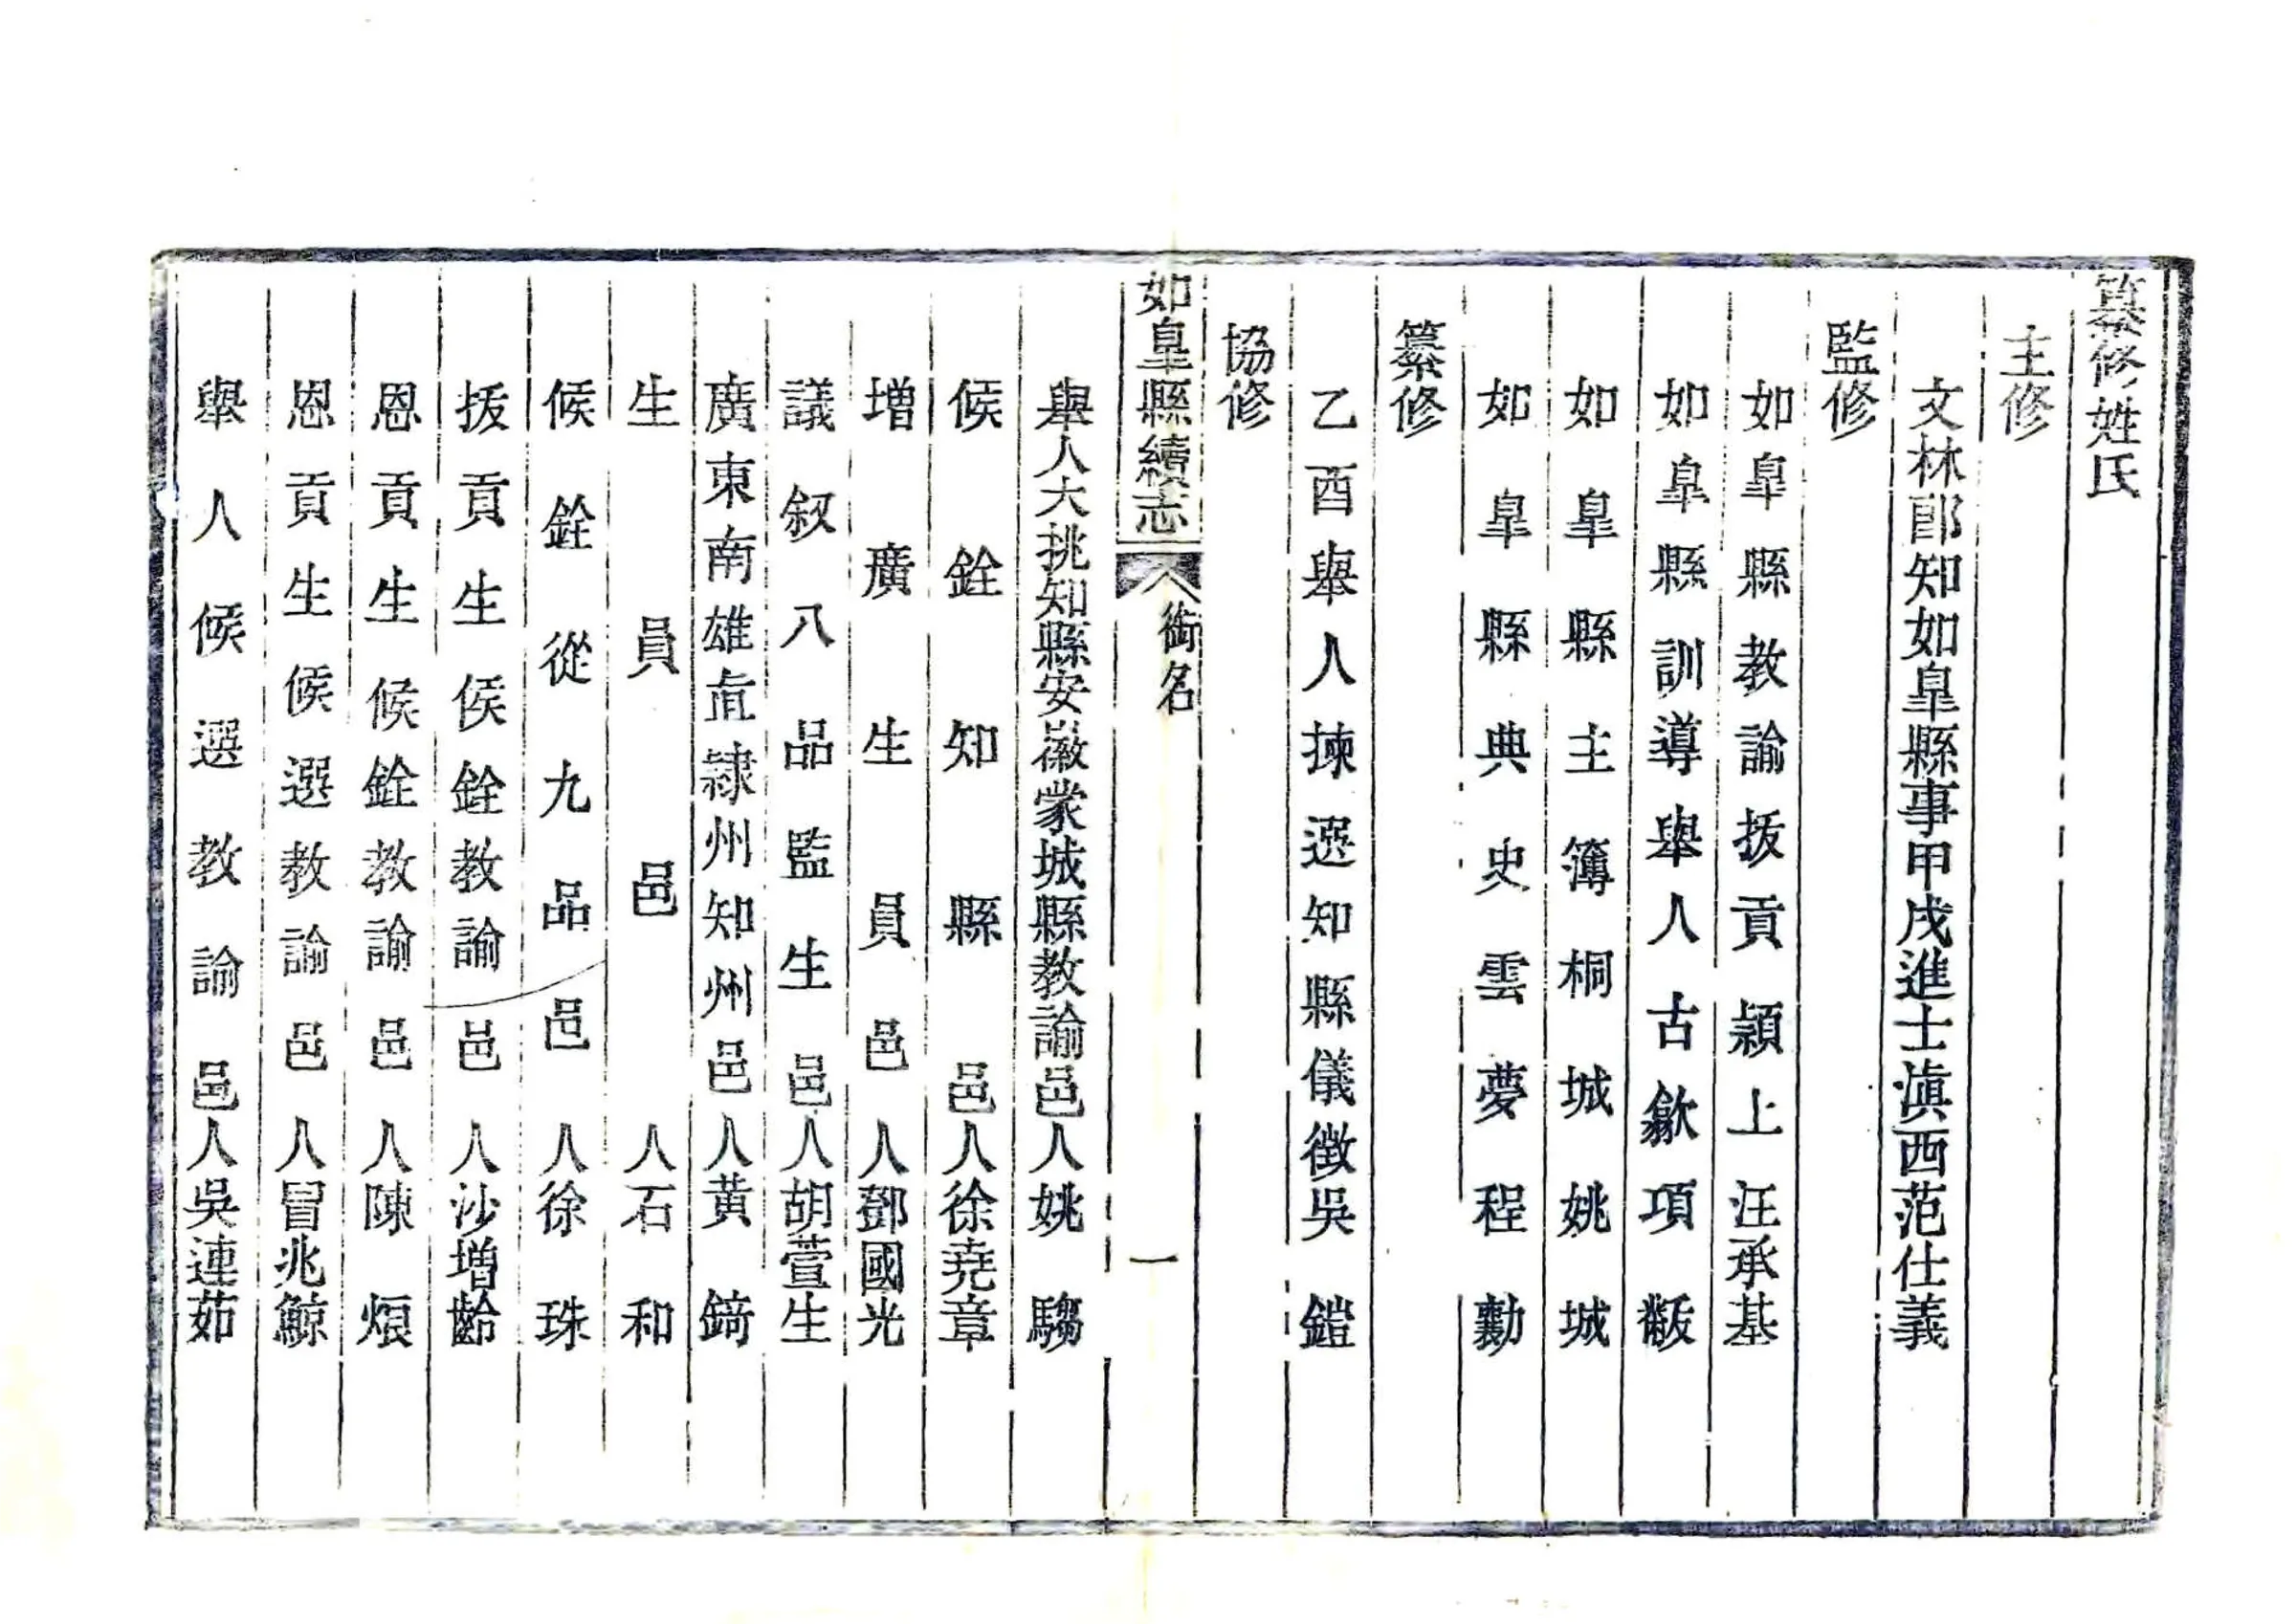 纂修姓氏
主修
文林郎知如臯縣事甲戌進士滇西范仕義
監修
如臯縣教諭拔貢潁上汪承基
如臯縣訓導舉人古歙項黻
如臯縣主簿桐城姚城
如臯縣典史雲夢程勷
纂修
乙酉舉人揀選知縣儀徵吳鎧
協修
如臯縣續志
銜名
一
舉人大挑知縣安徽蒙城縣教諭邑人姚騶
候銓知縣邑人徐堯章
增廣生員邑人鄧國光
議敘八品監生邑人胡萱生
廣東南雄直隸州知州邑人黃錡
生員邑人石和
候銓從九品邑人徐珠
拔貢生候銓教諭邑人沙增齡
恩貢生候銓教諭邑人陳煩
恩貢生候選教諭邑人冒兆鯨
舉人候選教諭邑人吳連茹